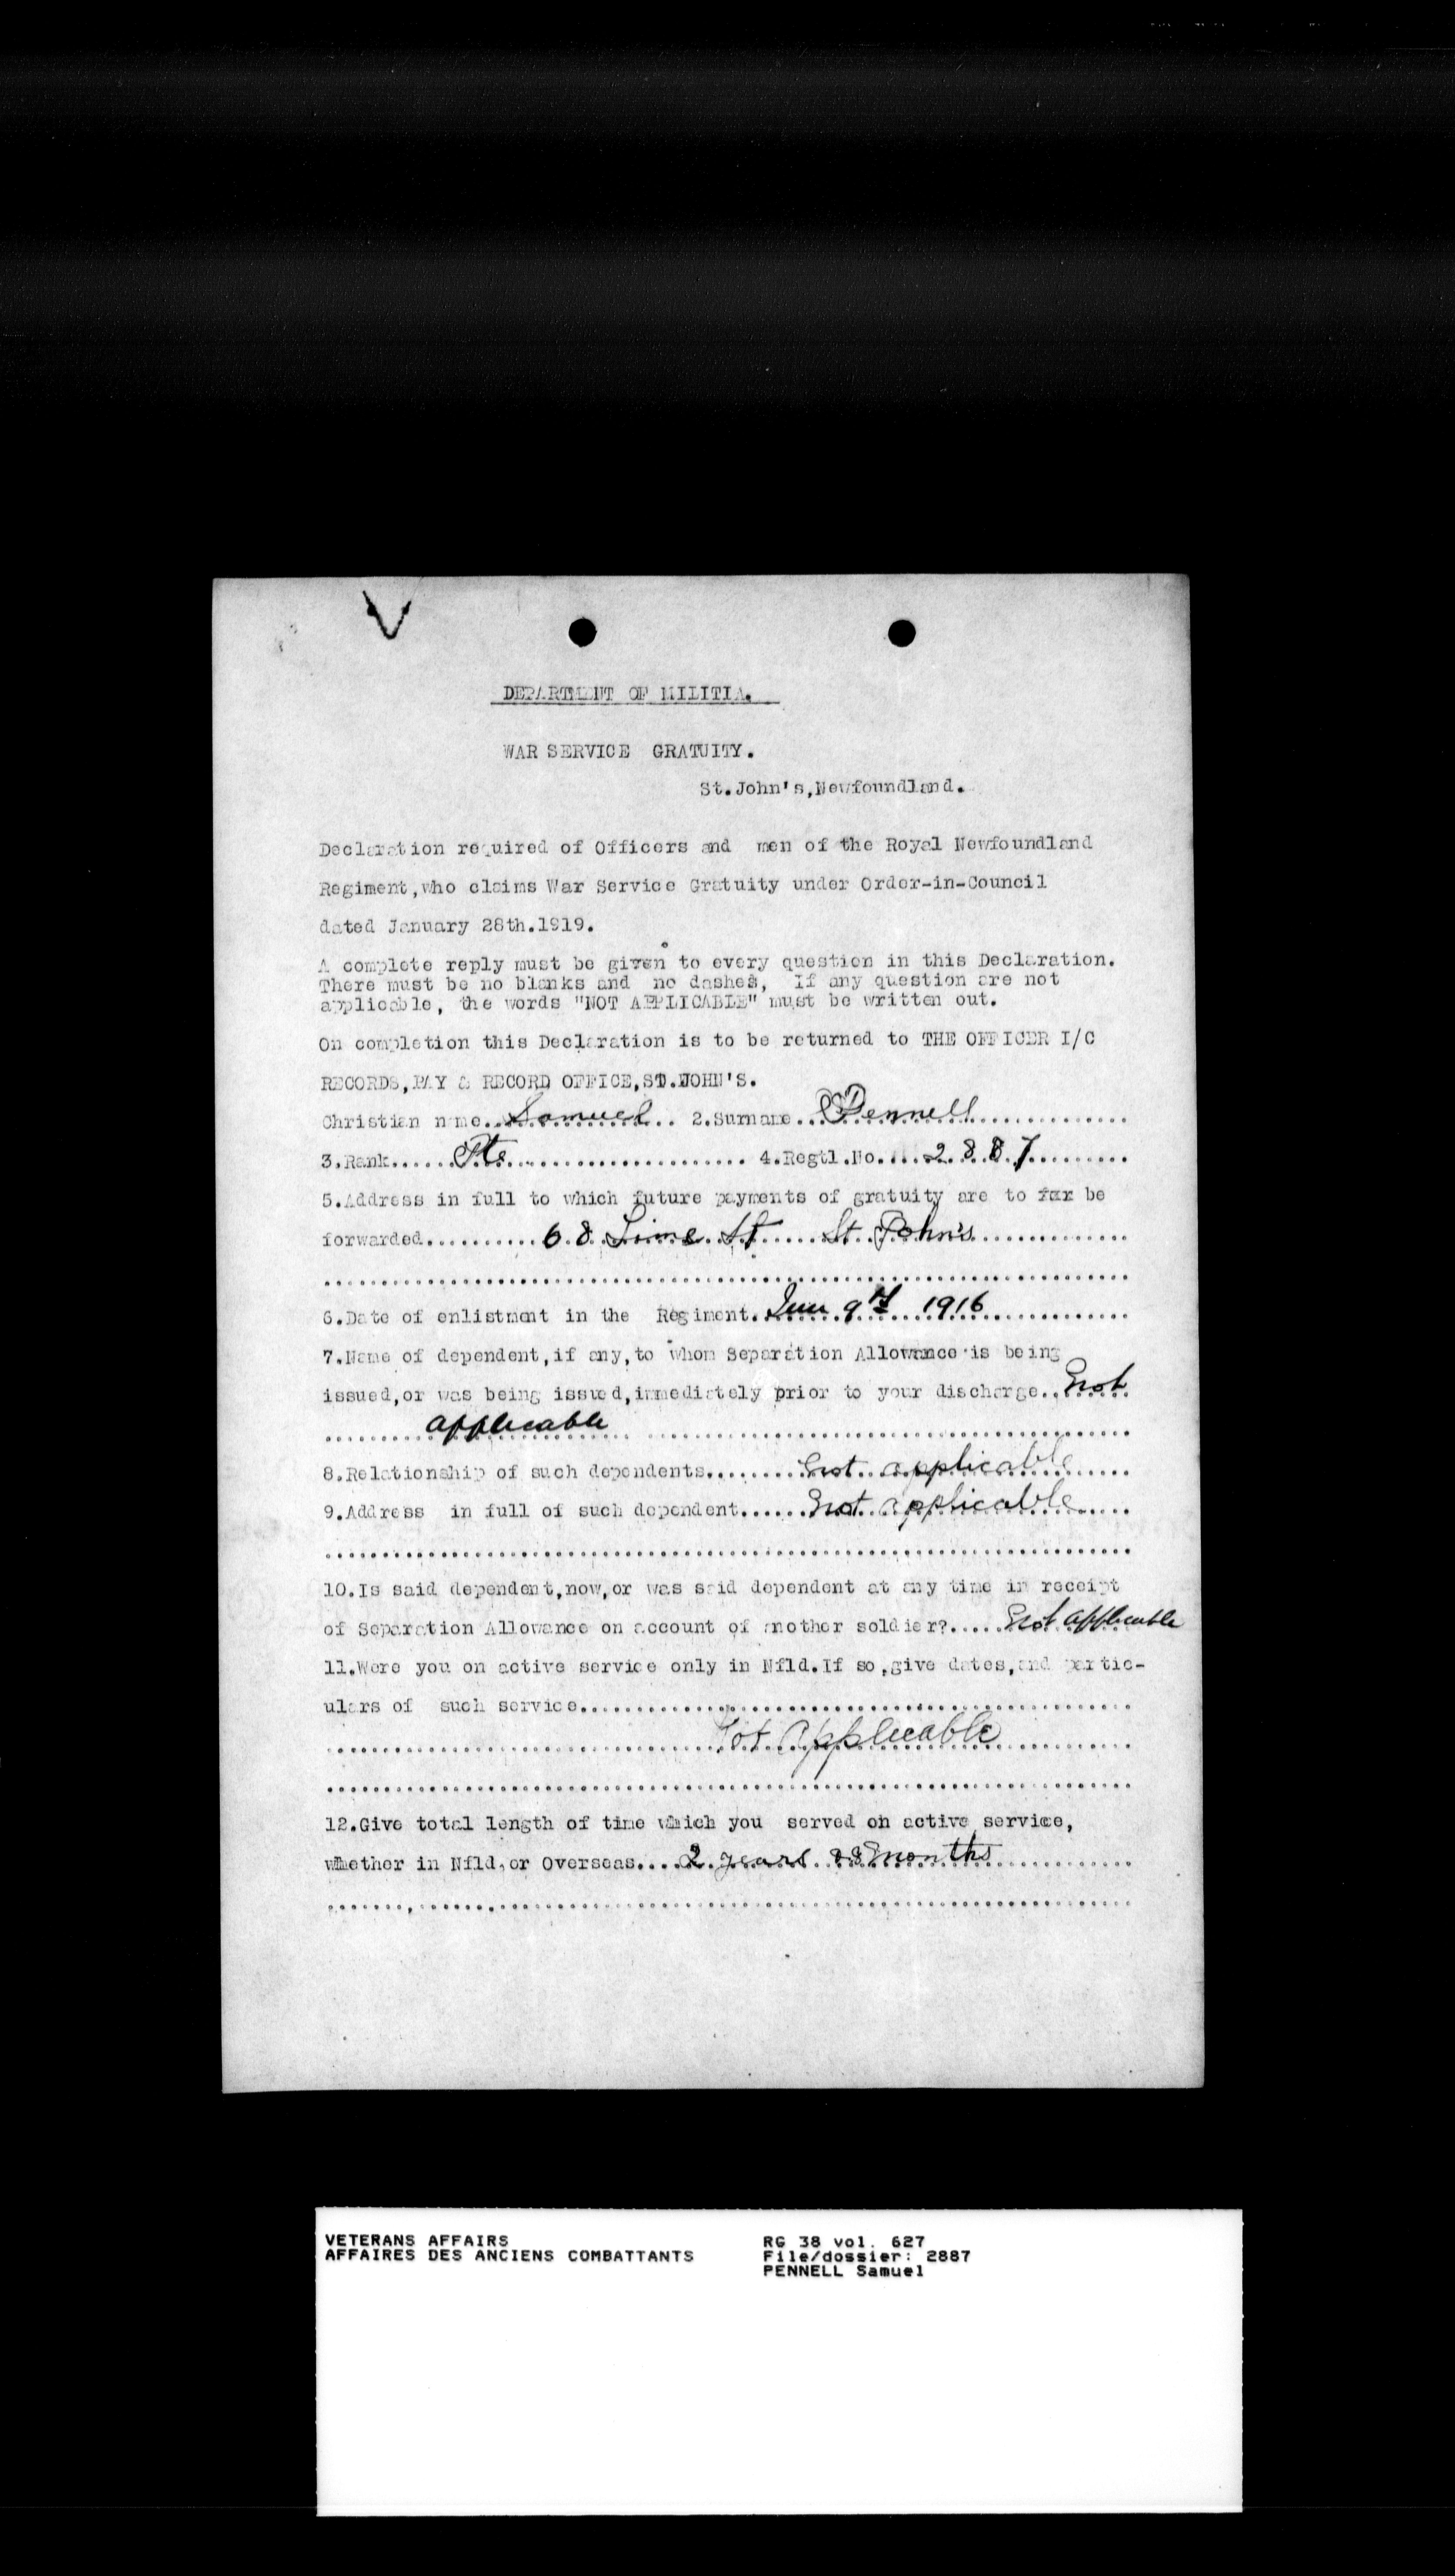 DEPARTMENT OF MILITIA.
WAR SERVICE GRATUITY.
St.John's,Newfoundland.
Declaration required of Officers and men of the Royal Newfoundland
Regiment,who claims War Service Gratuity under Order-in-Council
dated January 28th.1919.
A complete reply must be given to every question in this Declaration.
There must be no blanks and no dashes, If any question are not
applicable, the words "NOT APPLICABLE" must be written out.
On completion this Declaration is to be returned to THE OFFICER I/C
RECORDS,PAY & RECORD OFFICE,ST.JOHN'S.
Christian name..Samuel.. 2.Surname...Pennell..............
3.Rank......Pte........................ 4.Regtl.No.....2887.........
5.Address in full to which future payments of gratuity are to be
forwarded...........68 Lime St......St John's..............
6.Date of enlistment in the Regiment. 9th 1916
7.Name of dependent,if any,to whom Separation Allowance is being
issued,or was being issued,immediately prior to your discharge..Not
applicable
8.Relationship of such dependents........Not applicable
9.Address in full of such dependent......Not applicable
10.Is said dependent,now,or was said dependent at any time in receipt
of Separation Allowance on account of another soldier?.....Not applicable
11.Were you on active service only in Nfld.If so,give dates,and partic-
ulars of such service..............................
Not Applicable
12.Give total length of time which you served on active service,
whether in Nfld,or Overseas....2 years 8 months
VETERANS AFFAIRS
AFFAIRES DES ANCIENS COMBATTANTS
RG 38 vol. 627
File/dossier: 2887
PENNELL Samuel